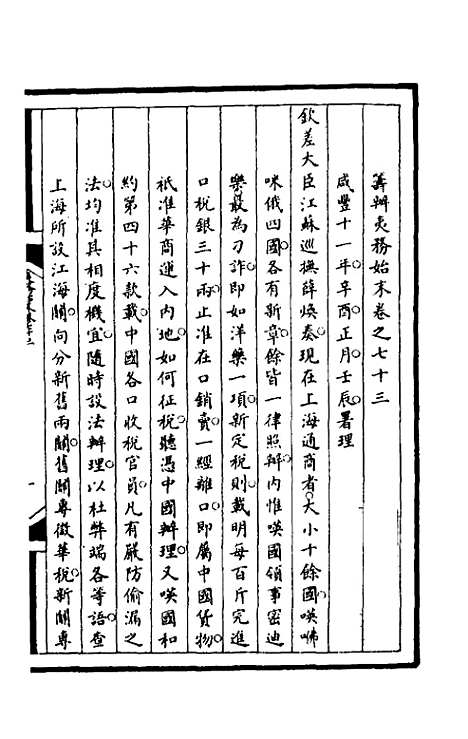 籌辦夷務始末卷之七十三
咸豐十一年辛酉正月壬辰署理
欽差大臣江蘇巡撫薛煥奏現在上海通商者大小十餘國暎咈
咪俄四國各有新章餘皆一律照辦內惟暎國領事密迪
樂最為刁詐即如洋藥一項新定稅則載明每百斤完進
口稅銀三十兩止准在口銷賣一經離口即屬中國貨物
祇准華商運入內地如何征稅聽憑中國辦理又暎國和
約第四十六款載中國各口收稅官員凡有嚴防偷漏之
法均准其相度機宜隨時設法辦理以杜弊端各等語查
上海所設江海關向分新舊兩關舊關專徵華稅新關專